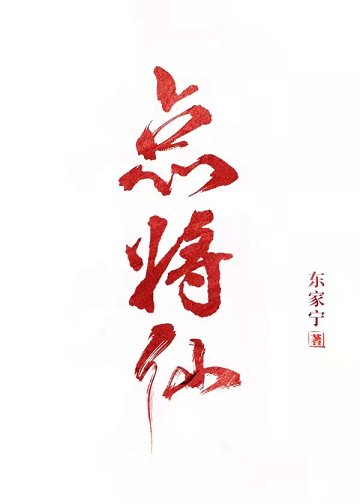 点将仙
东家宁 著